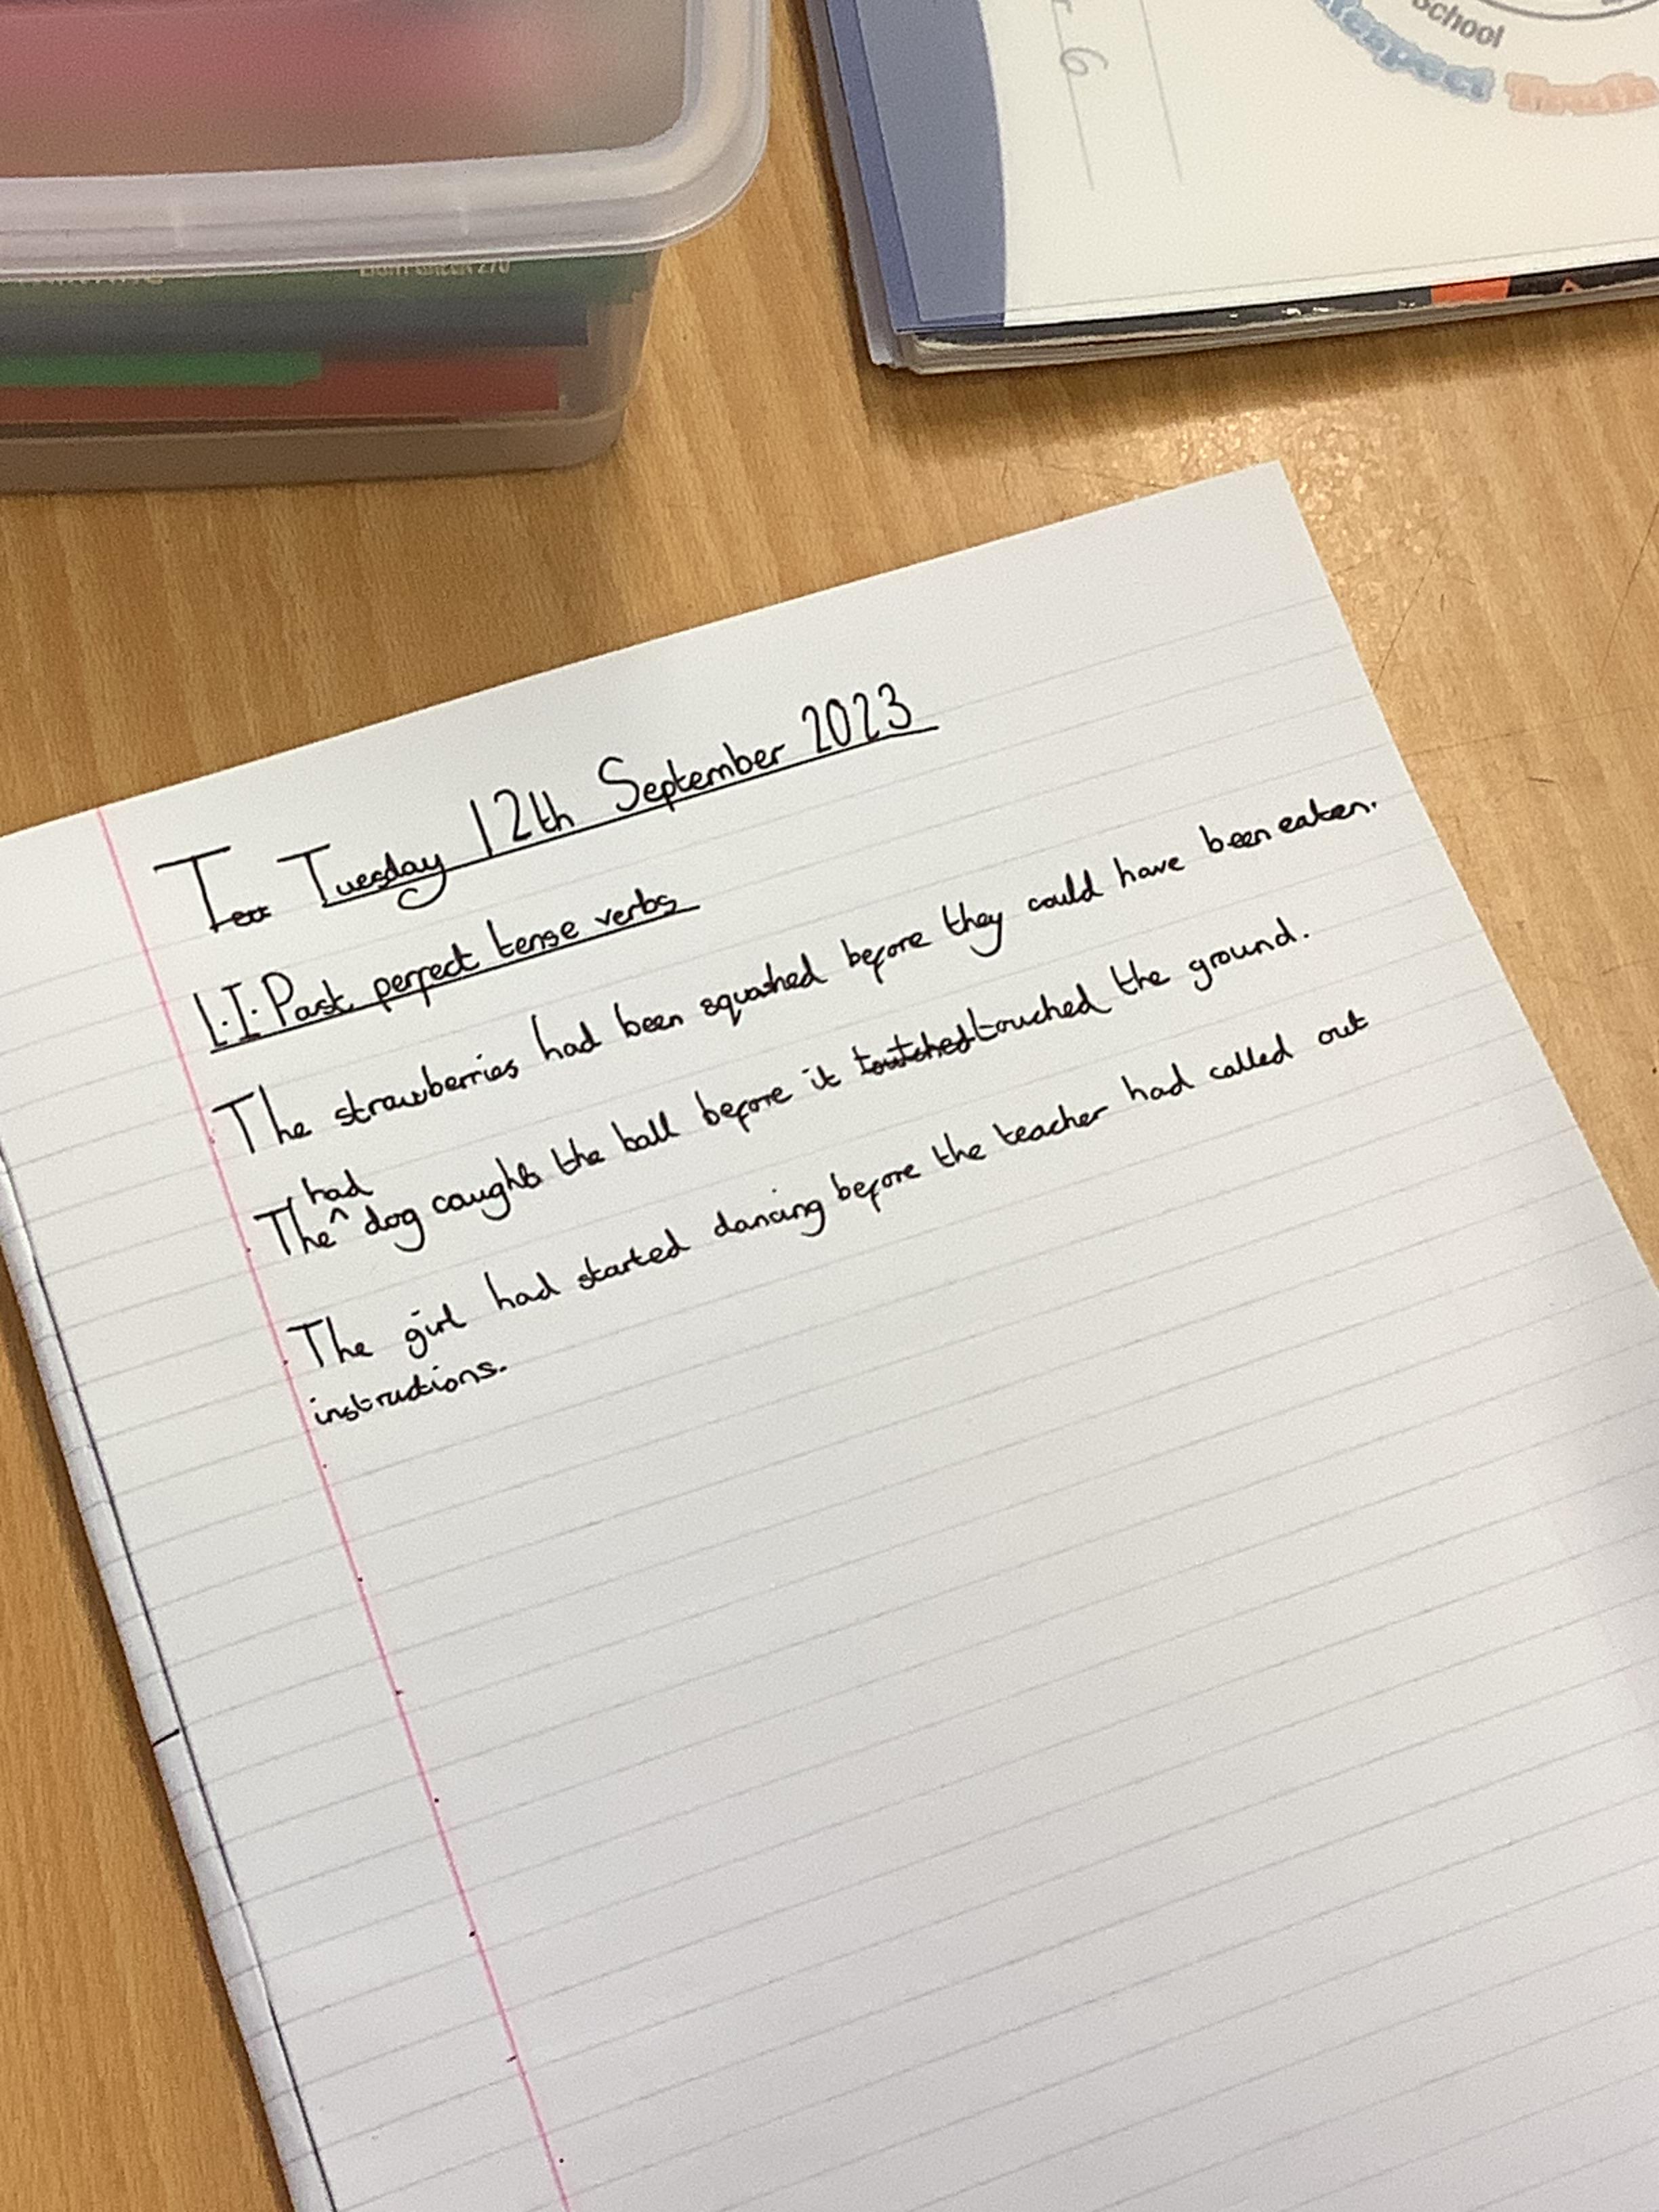 School
Respect
6
LIGHT GREEN 270
Tuesday 12th September 2023
L.I. Past perfect tense verbs
The strawberries had been squashed before they could have been eaten.
had
The ^ dog caught the ball before it toutched touched the ground.
The girl had started dancing before the teacher had called out
instructions.